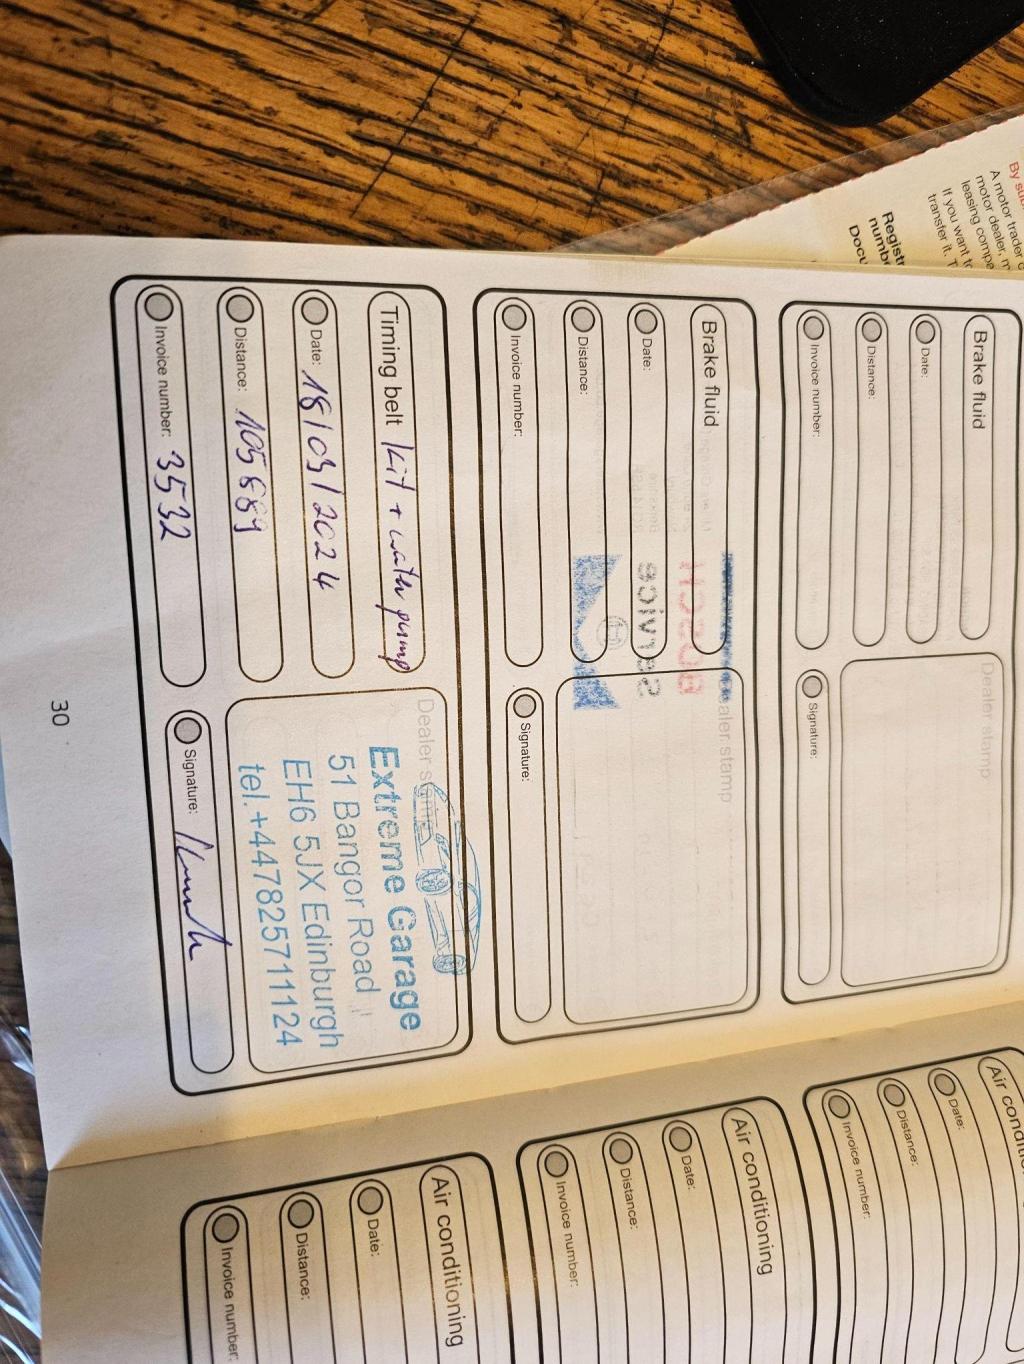 By sub
A motor trader o
motor dealer, m
leasing compa
If you want to
transfer it. T
Registr
numb
Docu
Brake fluid
Date:
Distance:
Invoice number:
Dealer stamp
Signature:
Brake fluid
Date:
Distance:
Invoice number:
BOSCH
Service
Dealer stamp
Signature:
Timing belt /kit + water pump
Date: 18/03/2024
Distance: 105 889
Invoice number: 3532
Dealer stamp
Extreme Garage
51 Bangor Road
EH6 5JX Edinburgh
tel.+447825711124
Signature:
30
Air conditi
Date:
Distance:
Invoice number:
Air conditioning
Date:
Distance:
Invoice number:
Air conditioning
Date:
Distance:
Invoice number: